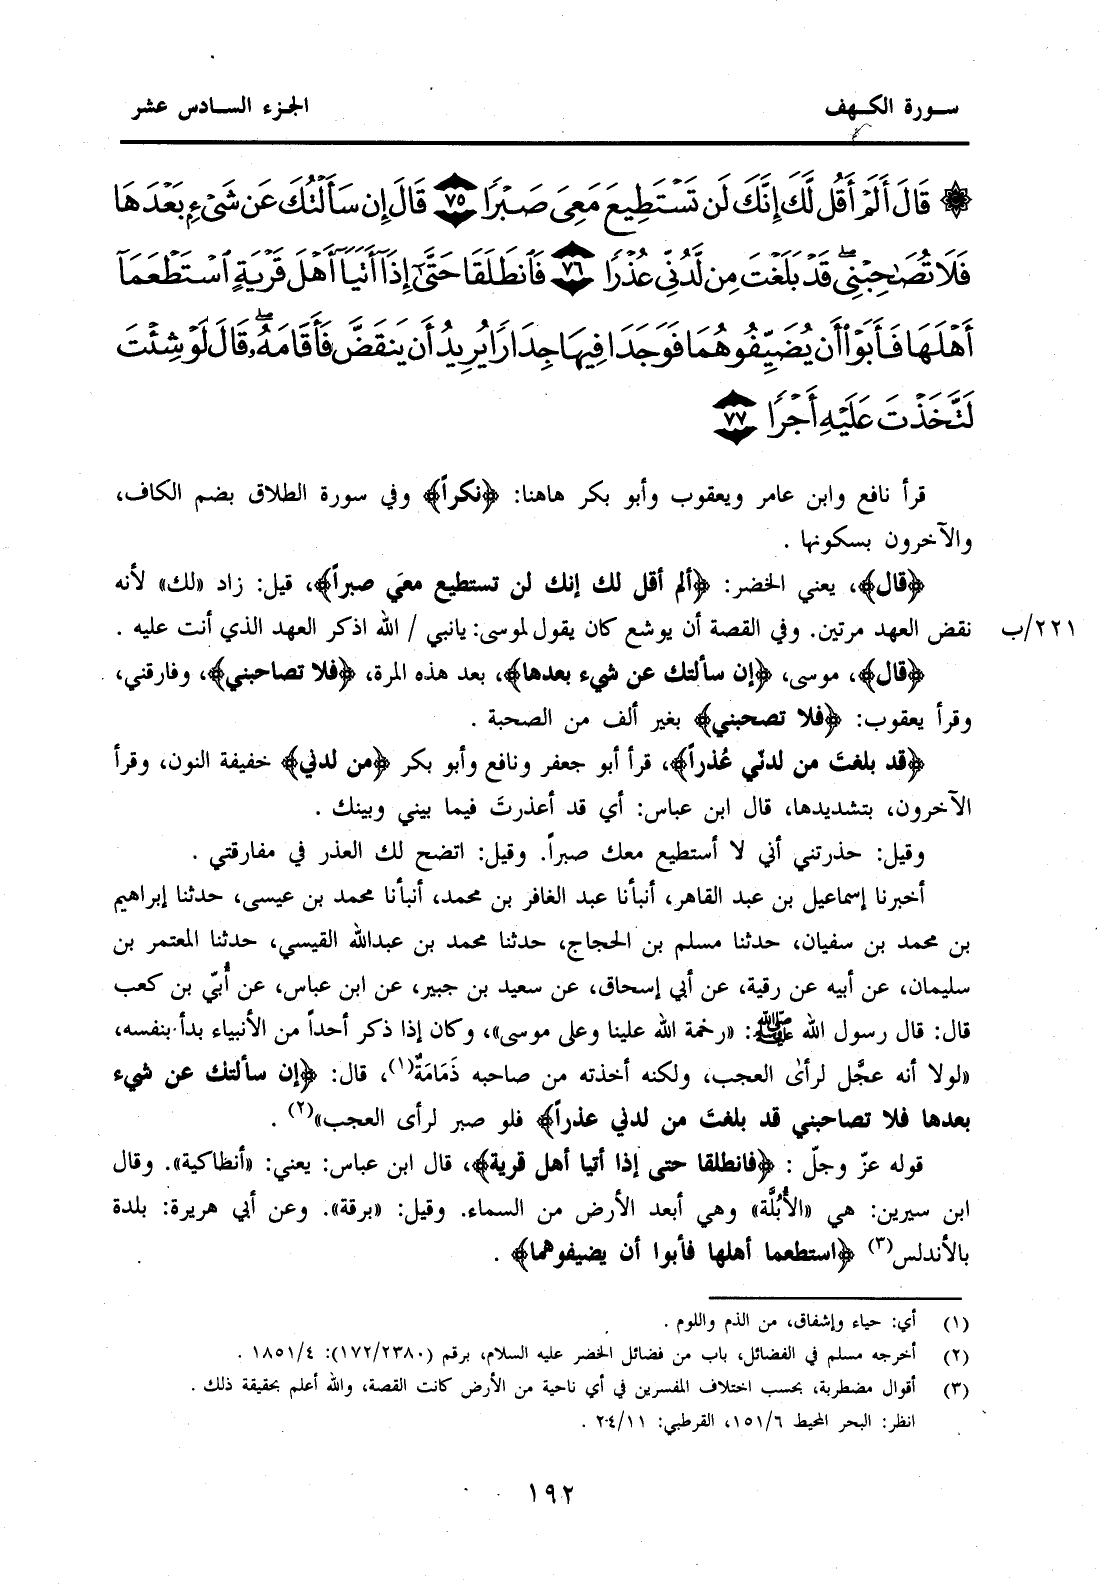 سورة الكهف
الجزء السادس عشر
۞ قَالَ أَلَمْ أَقُل لَّكَ إِنَّكَ لَن تَسْتَطِيعَ مَعِىَ صَبْرًا ٧٥ قَالَ إِن سَأَلْتُكَ عَن شَىْءٍ بَعْدَهَا
فَلَا تُصَٰحِبْنِى ۖ قَدْ بَلَغْتَ مِن لَّدُنِّى عُذْرًا ٧٦ فَٱنطَلَقَا حَتَّىٰٓ إِذَآ أَتَيَآ أَهْلَ قَرْيَةٍ ٱسْتَطْعَمَآ
أَهْلَهَا فَأَبَوْا۟ أَن يُضَيِّفُوهُمَا فَوَجَدَا فِيهَا جِدَارًا يُرِيدُ أَن يَنقَضَّ فَأَقَامَهُۥ ۖ قَالَ لَوْ شِئْتَ
لَتَّخَذْتَ عَلَيْهِ أَجْرًا ٧٧
قرأ نافع وابن عامر ويعقوب وأبو بكر هاهنا: ﴿نكراً﴾ وفي سورة الطلاق بضم الكاف،
والآخرون بسكونها .
﴿قال﴾، يعني الخضر: ﴿ألم أقل لك إنك لن تستطيع معيَ صبراً﴾، قيل: زاد «لك» لأنه
نقض العهد مرتين. وفي القصة أن يوشع كان يقول لموسى: يانبي / الله اذكر العهد الذي أنت عليه .
٢٢١/ب
﴿قال﴾، موسى، ﴿إن سألتك عن شيء بعدها﴾، بعد هذه المرة، ﴿فلا تصاحبني﴾، وفارقني،
وقرأ يعقوب: ﴿فلا تصحبني﴾ بغير ألف من الصحبة .
﴿قد بلغتَ من لدنّي عُذراً﴾، قرأ أبو جعفر ونافع وأبو بكر ﴿من لدني﴾ خفيفة النون، وقرأ
الآخرون، بتشديدها، قال ابن عباس: أي قد أعذرتَ فيما بيني وبينك .
وقيل: حذرتني أني لا أستطيع معك صبراً. وقيل: اتضح لك العذر في مفارقتي .
أخبرنا إسماعيل بن عبد القاهر، أنبأنا عبد الغافر بن محمد، أنبأنا محمد بن عيسى، حدثنا إبراهيم
بن محمد بن سفيان، حدثنا مسلم بن الحجاج، حدثنا محمد بن عبدالله القيسي، حدثنا المعتمر بن
سليمان، عن أبيه عن رقية، عن أبي إسحاق، عن سعيد بن جبير، عن ابن عباس، عن أُبيّ بن كعب
قال: قال رسول الله ﷺ: «رحمة الله علينا وعلى موسى»، وكان إذا ذكر أحداً من الأنبياء بدأ بنفسه،
«لولا أنه عجَّل لرأى العجب، ولكنه أخذته من صاحبه ذَمَامَةٌ(١)، قال: ﴿إن سألتك عن شيء
بعدها فلا تصاحبني قد بلغتَ من لدني عذراً﴾ فلو صبر لرأى العجب»(٢) .
قوله عزّ وجلّ : ﴿فانطلقا حتى إذا أتيا أهل قرية﴾، قال ابن عباس: يعني: «أنظاكية». وقال
ابن سيرين: هي «الأُبُلَّة» وهي أبعد الأرض من السماء. وقيل: «برقة». وعن أبي هريرة: بلدة
بالأندلس(٣) ﴿استطعما أهلها فأبوا أن يضيفوهما﴾ .
(١) أي: حياء وإشفاق، من الذم واللوم .
(٢) أخرجه مسلم في الفضائل، باب من فضائل الخضر عليه السلام، برقم (١٧٢/٢٣٨٠): ١٨٥١/٤ .
(٣) أقوال مضطربة، بحسب اختلاف المفسرين في أي ناحية من الأرض كانت القصة، والله أعلم بحقيقة ذلك .
انظر: البحر المحيط ١٥١/٦، القرطبي: ٢٠٤/١١ .
١٩٢